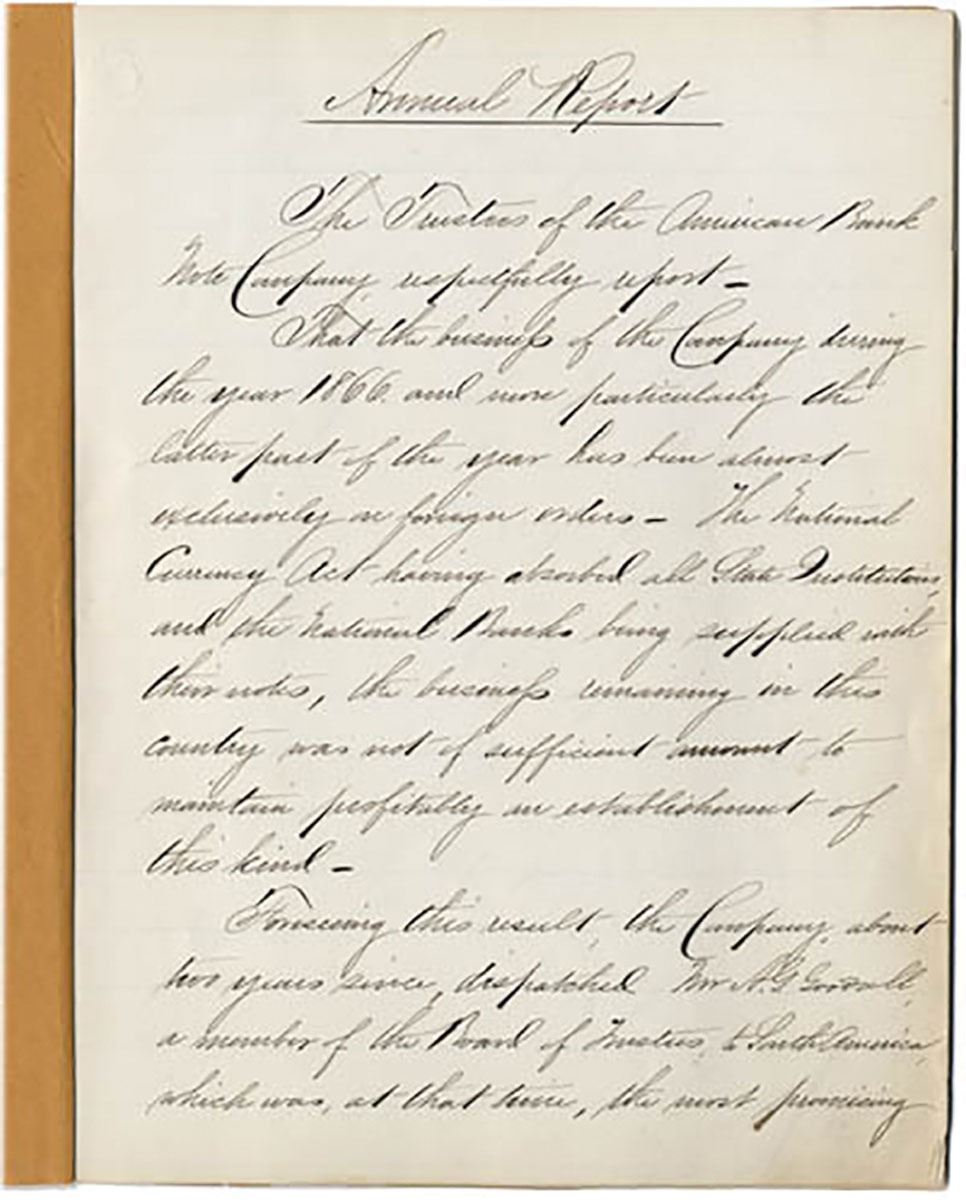 Annual Report
The Trustees of the American Bank
Note Company, respectfully report –
That the business of the Company during
the year 1866. and more particularly the
latter part of the year has been almost
exclusively on foreign orders – The National
Currency Act having absorbed all State Institutions,
and the National Banks being supplied with
their notes, the business remaining in this
country was not of sufficient amount to
maintain profitably an establishment of
this kind –
Foreseeing this result, the Company, about
two years since, dispatched Mr A. G. Goodall,
a member of the Board of Trustees, to South America,
which was, at that time, the most promising